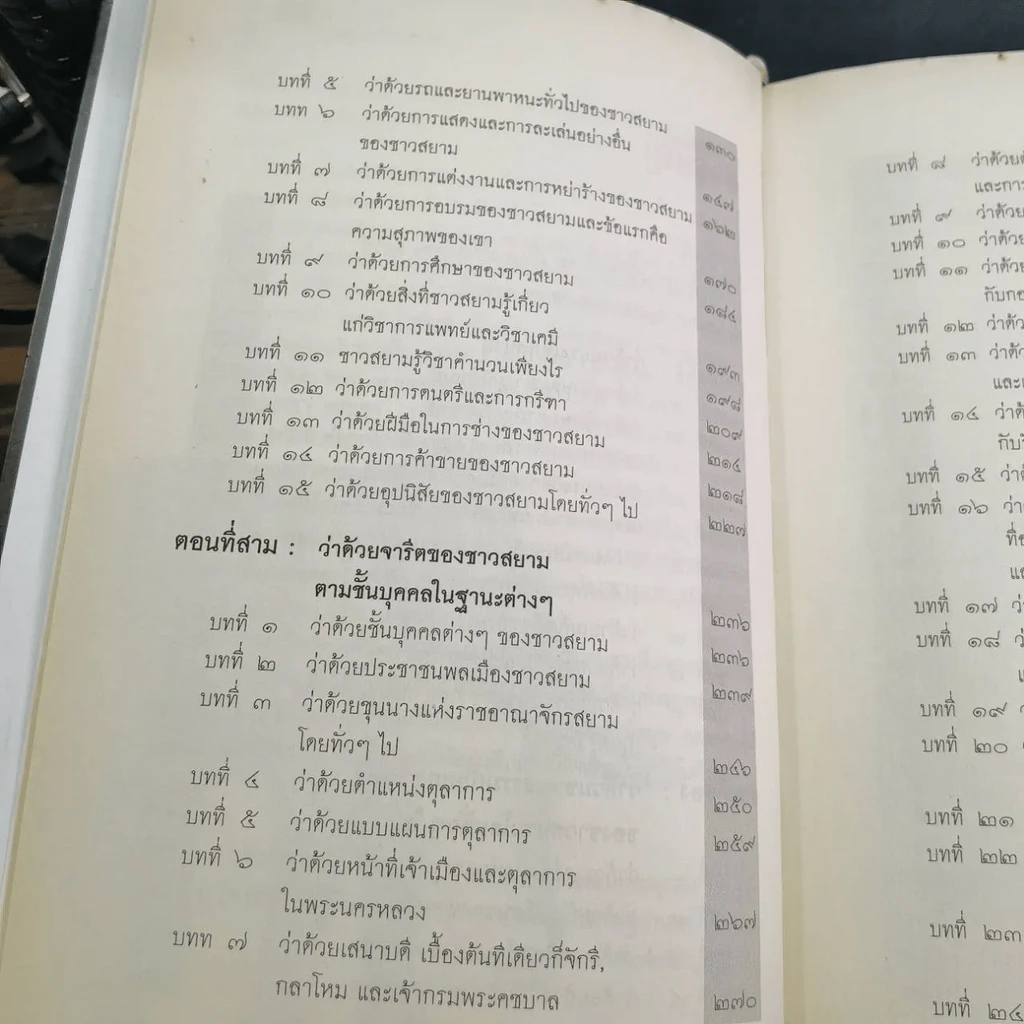 บทที่ ๕ ว่าด้วยรถและยานพาหนะทั่วไปของชาวสยาม ๑๓๐
บทที่ ๖ ว่าด้วยการแสดงและการละเล่นอย่างอื่น
ของชาวสยาม ๑๔๗
บทที่ ๗ ว่าด้วยการแต่งงานและการหย่าร้างของชาวสยาม ๑๖๒
บทที่ ๘ ว่าด้วยการอบรมของชาวสยามและข้อแรกคือ
ความสุภาพของเขา ๑๗๐
บทที่ ๙ ว่าด้วยการศึกษาของชาวสยาม ๑๘๔
บทที่ ๑๐ ว่าด้วยสิ่งที่ชาวสยามรู้เกี่ยว
แก่วิชาการแพทย์และวิชาเคมี ๑๙๓
บทที่ ๑๑ ชาวสยามรู้วิชาคำนวนเพียงไร ๑๙๘
บทที่ ๑๒ ว่าด้วยการดนตรีและการกรีฑา ๒๐๙
บทที่ ๑๓ ว่าด้วยฝีมือในการช่างของชาวสยาม ๒๑๔
บทที่ ๑๔ ว่าด้วยการค้าขายของชาวสยาม ๒๑๘
บทที่ ๑๕ ว่าด้วยอุปนิสัยของชาวสยามโดยทั่วๆ ไป ๒๒๗
ตอนที่สาม : ว่าด้วยจารีตของชาวสยาม
ตามชั้นบุคคลในฐานะต่างๆ ๒๓๖
บทที่ ๑ ว่าด้วยชั้นบุคคลต่างๆ ของชาวสยาม ๒๓๖
บทที่ ๒ ว่าด้วยประชาชนพลเมืองชาวสยาม ๒๓๙
บทที่ ๓ ว่าด้วยขุนนางแห่งราชอาณาจักรสยาม
โดยทั่วๆ ไป ๒๔๖
บทที่ ๔ ว่าด้วยตำแหน่งตุลาการ ๒๕๐
บทที่ ๕ ว่าด้วยแบบแผนการตุลาการ ๒๕๙
บทที่ ๖ ว่าด้วยหน้าที่เจ้าเมืองและตุลาการ
ในพระนครหลวง ๒๖๗
บทที่ ๗ ว่าด้วยเสนาบดี เบื้องต้นทีเดียวก็จักรี,
กลาโหม และเจ้ากรมพระคชบาล ๒๗๐
บทที่ ๘ ว่าด้วย
และการ
บทที่ ๙ ว่าด้วย
บทที่ ๑๐ ว่าด้วย
บทที่ ๑๑ ว่าด้วย
กับกอ
บทที่ ๑๒ ว่าด้
บทที่ ๑๓ ว่าด้
และ
บทที่ ๑๔ ว่าด้
กับ
บทที่ ๑๕ ว่าด้
บทที่ ๑๖ ว่า
ที่
แ
บทที่ ๑๗ ว่
บทที่ ๑๘ ว่
แ
บทที่ ๑๙
บทที่ ๒๐
บทที่ ๒๑
บทที่ ๒๒
บทที่ ๒๓
บทที่ ๒๔